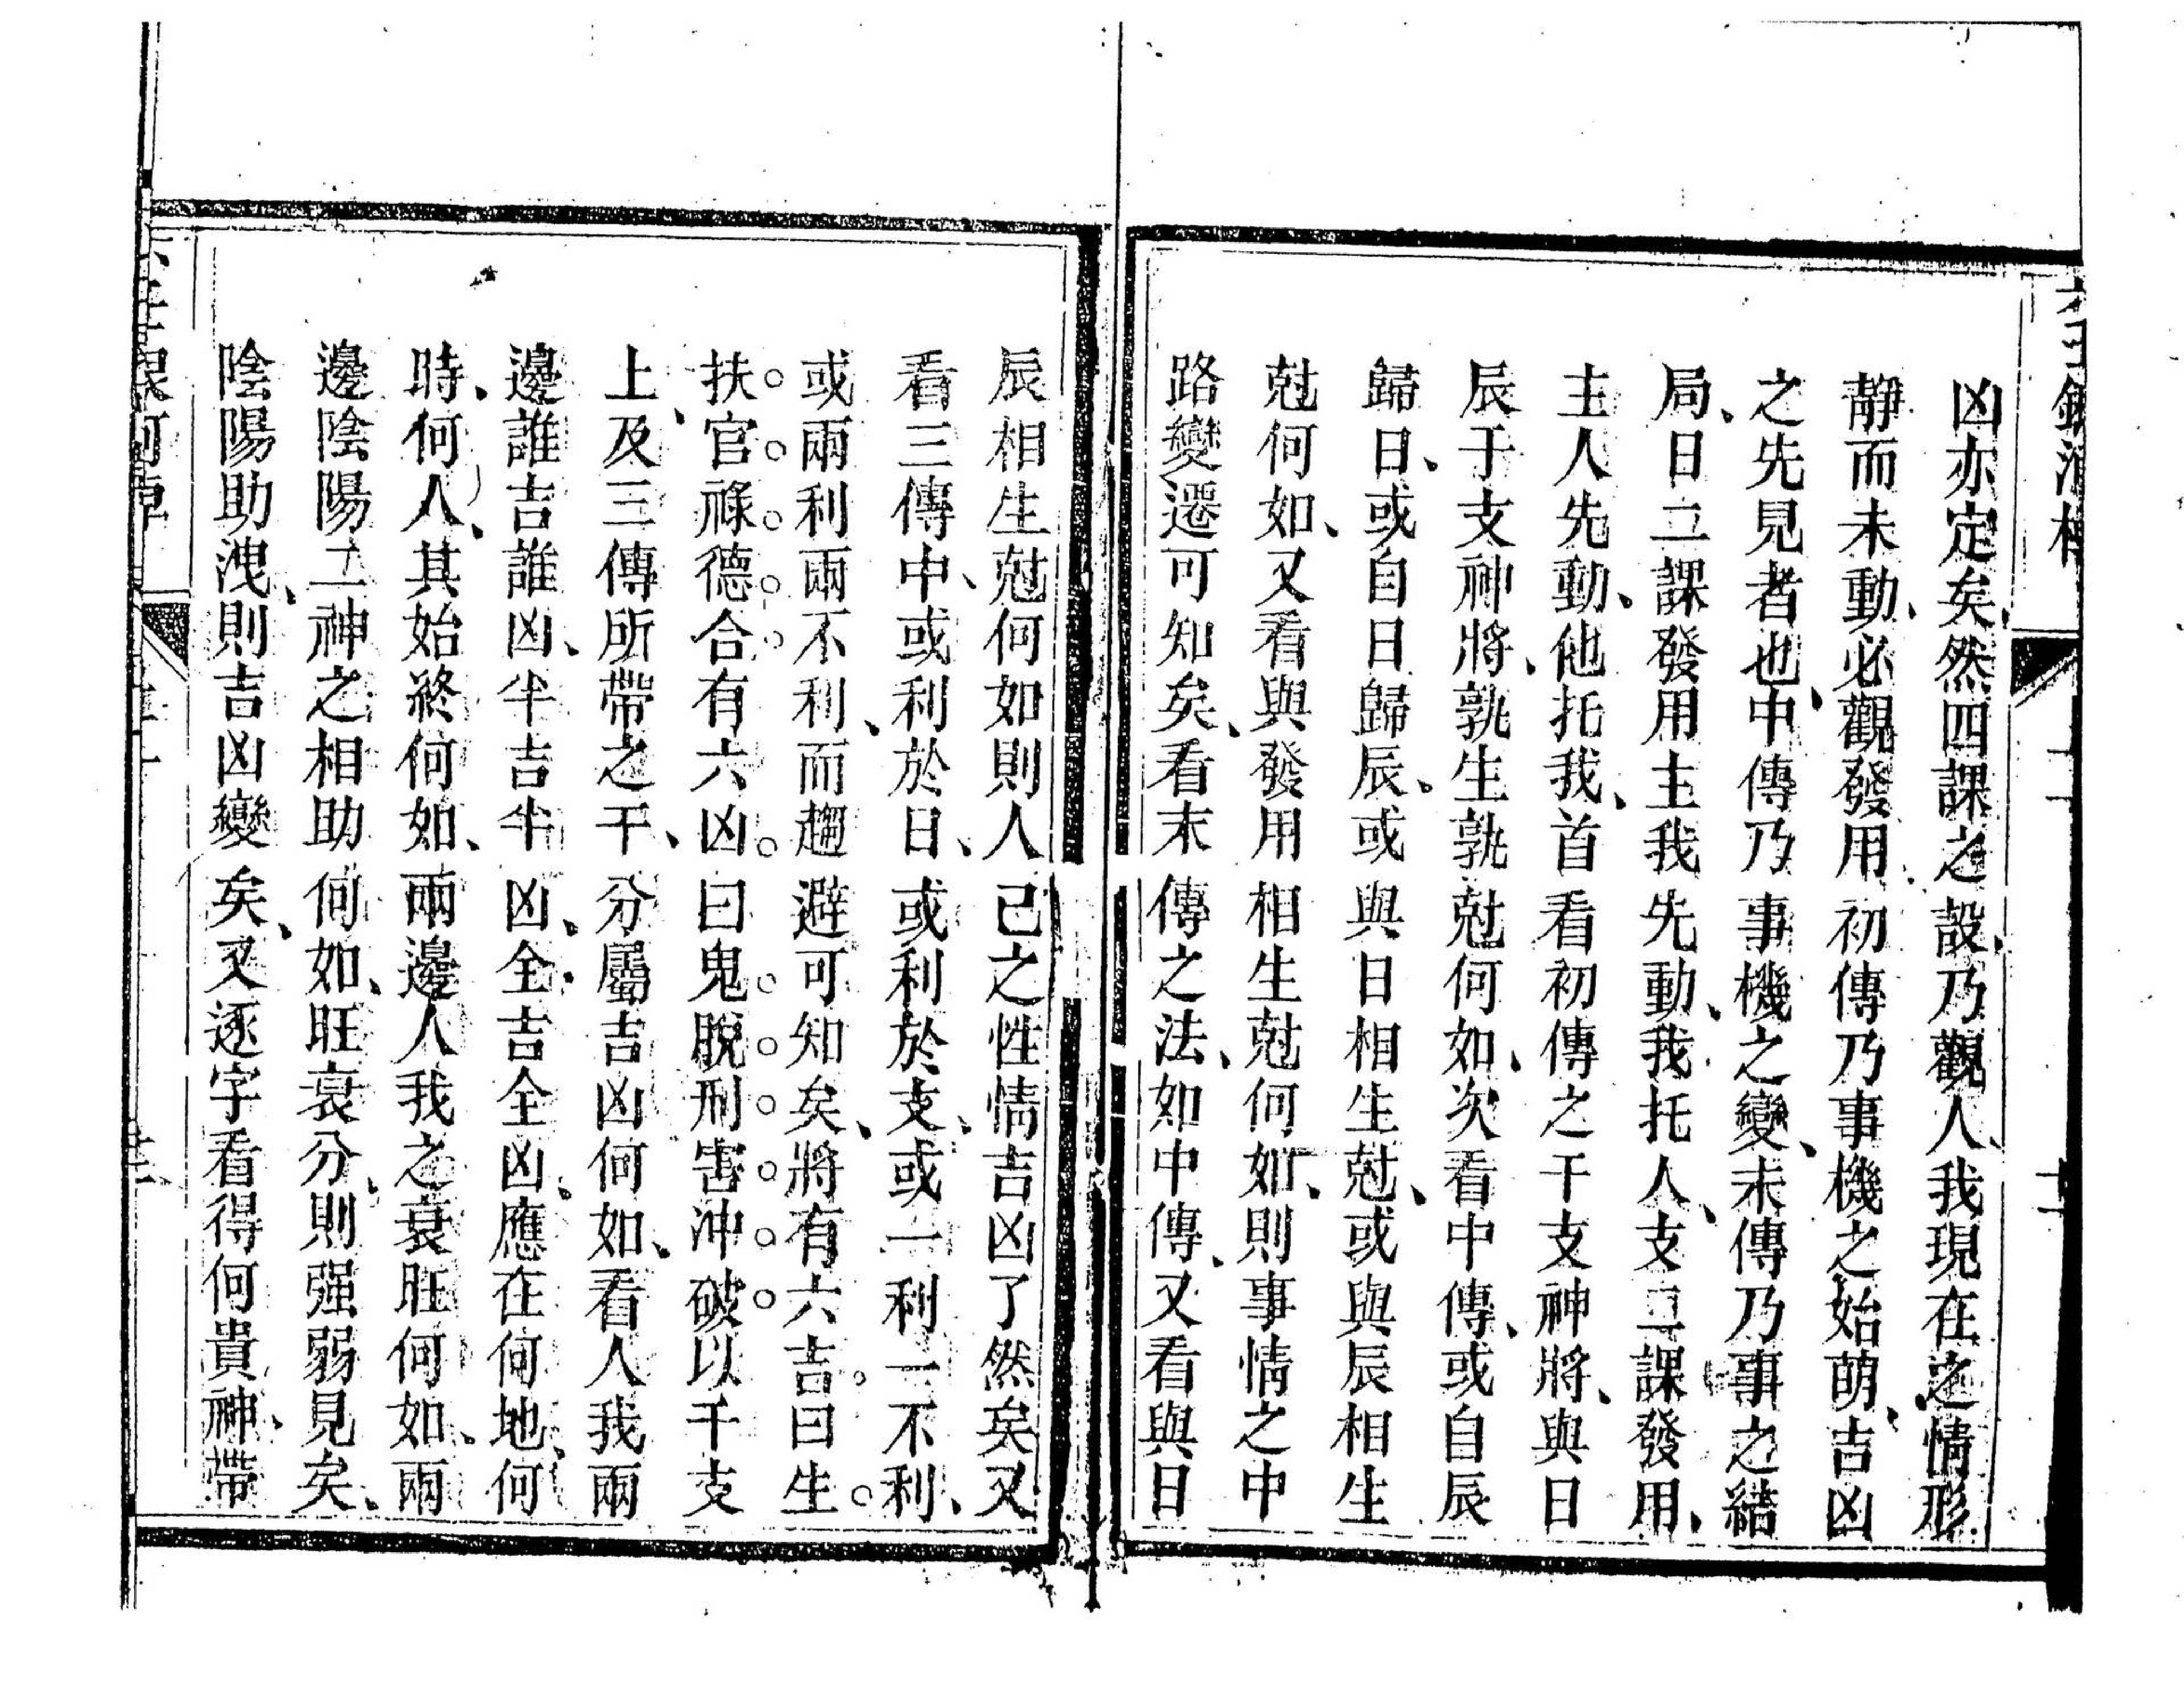 凶亦定矣、然四課之設、乃觀人、我現在之情形
靜而未動、必觀發用、初傳乃事機之始萌、吉凶
之先見者也、中傳乃事機之變、末傳乃事之結
局、日二課發用主我先動、我托人、支二課發用、
主人先動、他托我、首看初傳之干支神將、與日
辰干支神將、孰生孰尅何如、次看中傳、或自辰
歸日、或自日歸辰、或與日相生尅、或與辰相生
尅何如、又看與發用相生尅何如、則事情之中
路變遷可知矣、看末傳之法、如中傳、又看與日
辰相生尅何如則人己之性情吉凶了然矣又
看三傳中、或利於日、或利於支、或一利一不利、
或兩利兩不利、而趨避可知矣、將有六吉曰生
扶官祿德合有六凶曰鬼脫刑害沖破以干支
上、及三傳所帶之干、分屬吉凶何如、看人我兩
邊誰吉誰凶、半吉半凶、全吉全凶、應在何地、何
時、何人、其始終何如、兩邊人我之衰旺何如、兩
邊陰陽二神之相助何如、旺衰分、則强弱見矣、
陰陽助洩、則吉凶變矣、又逐字看得何貴神、帶